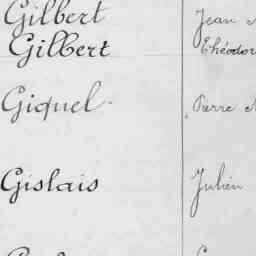 Gilbert Jean
Gilbert Théodor
Giquel Pierre
Gislais Julien